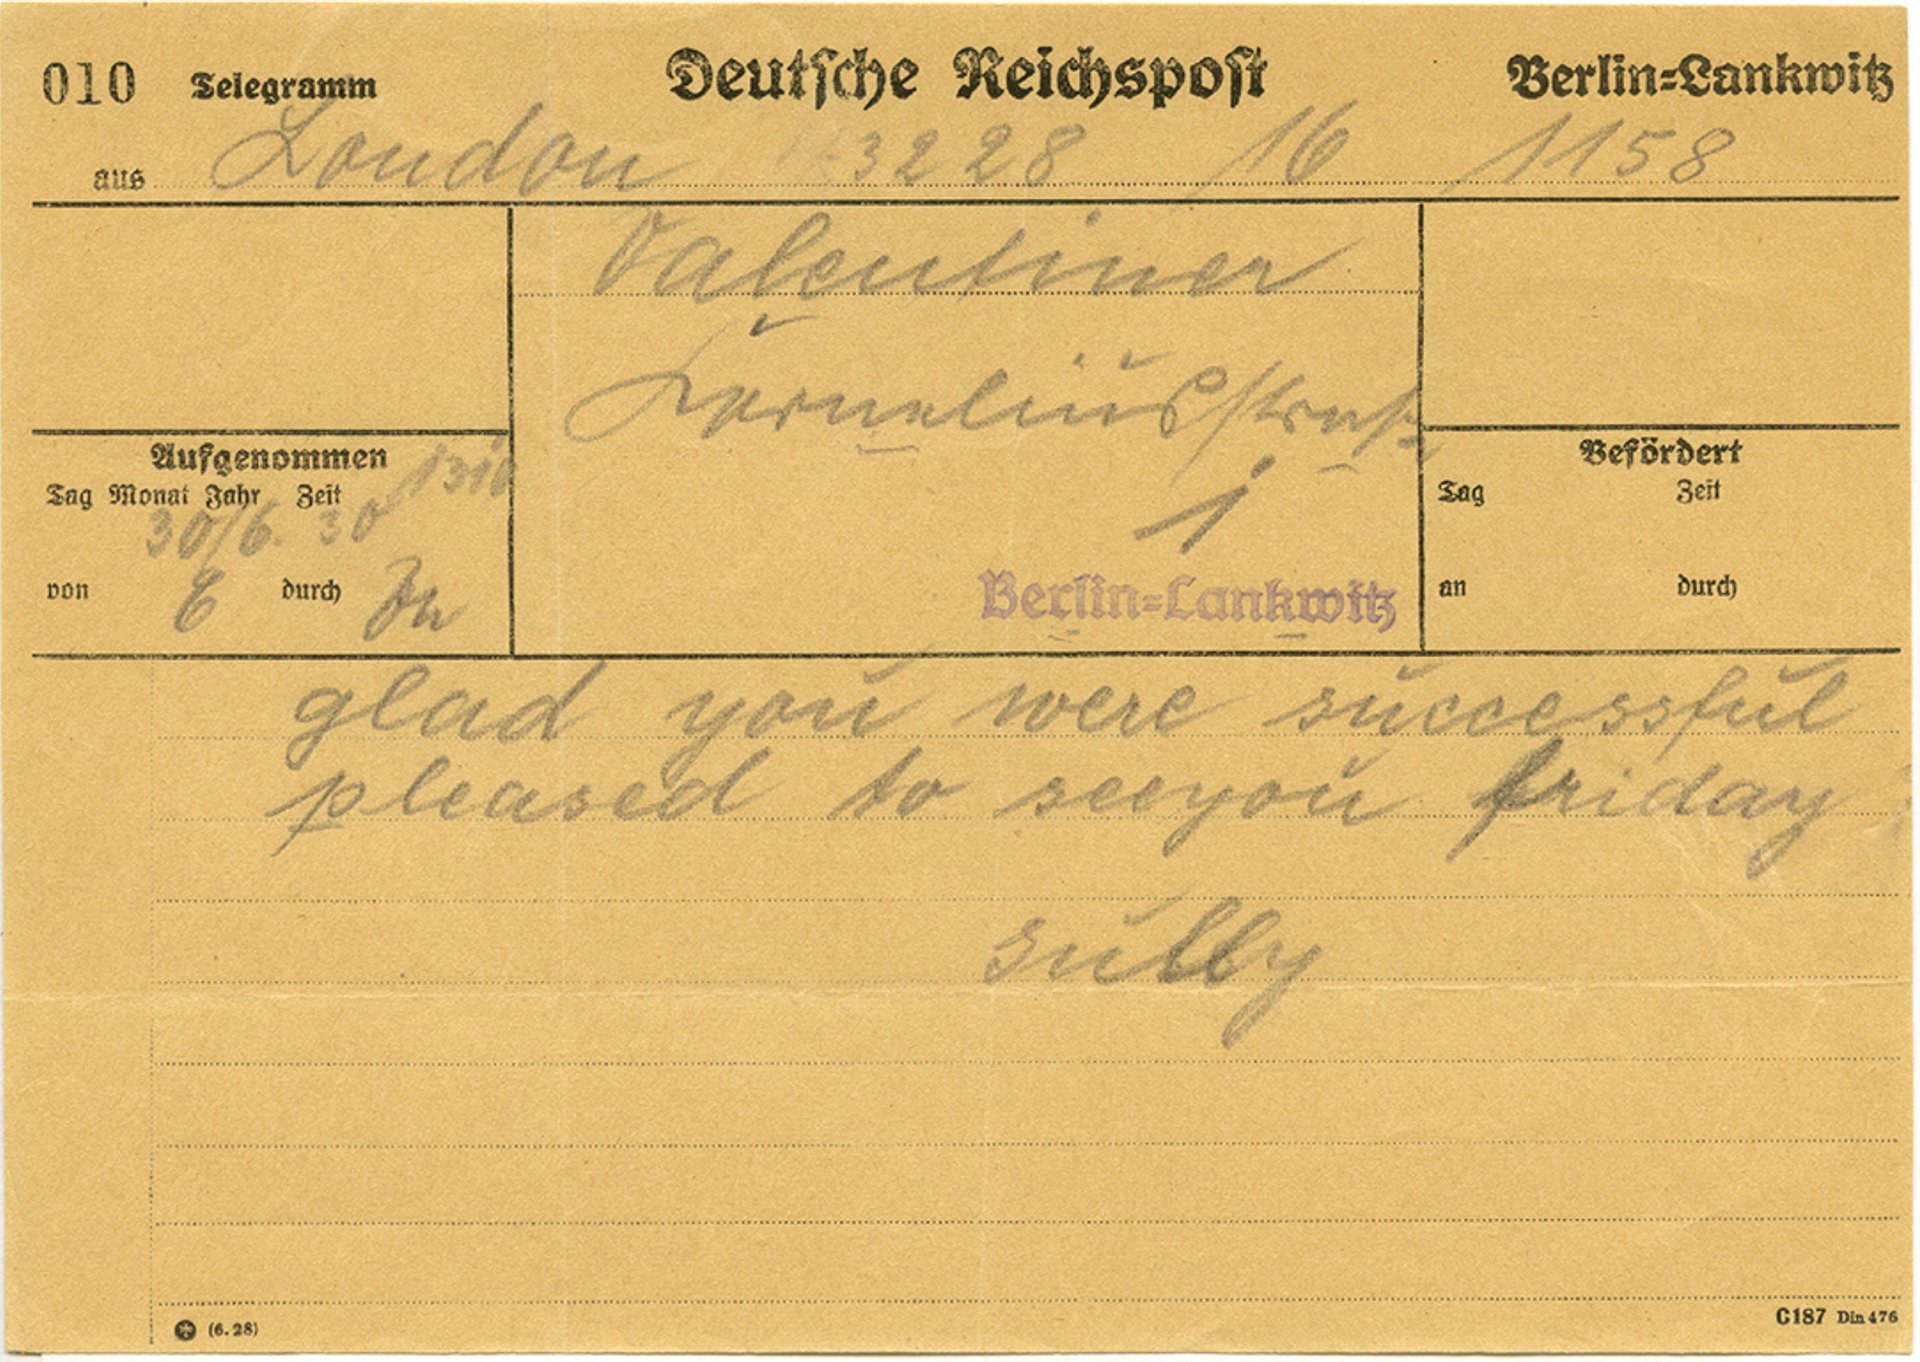 010 Telegramm Deutsche Reichspost Berlin=Lankwitz
aus London 3228 16 1158
Valentiner
Corneliusstraß
1
Berlin=Lankwitz
Aufgenommen
Tag Monat Jahr Zeit 1310
30/6. 30
von E durch
Befördert
Tag Zeit
an durch
glad you were successful
pleased to seeyou friday
sulby
(6.28)
C187 Din 476